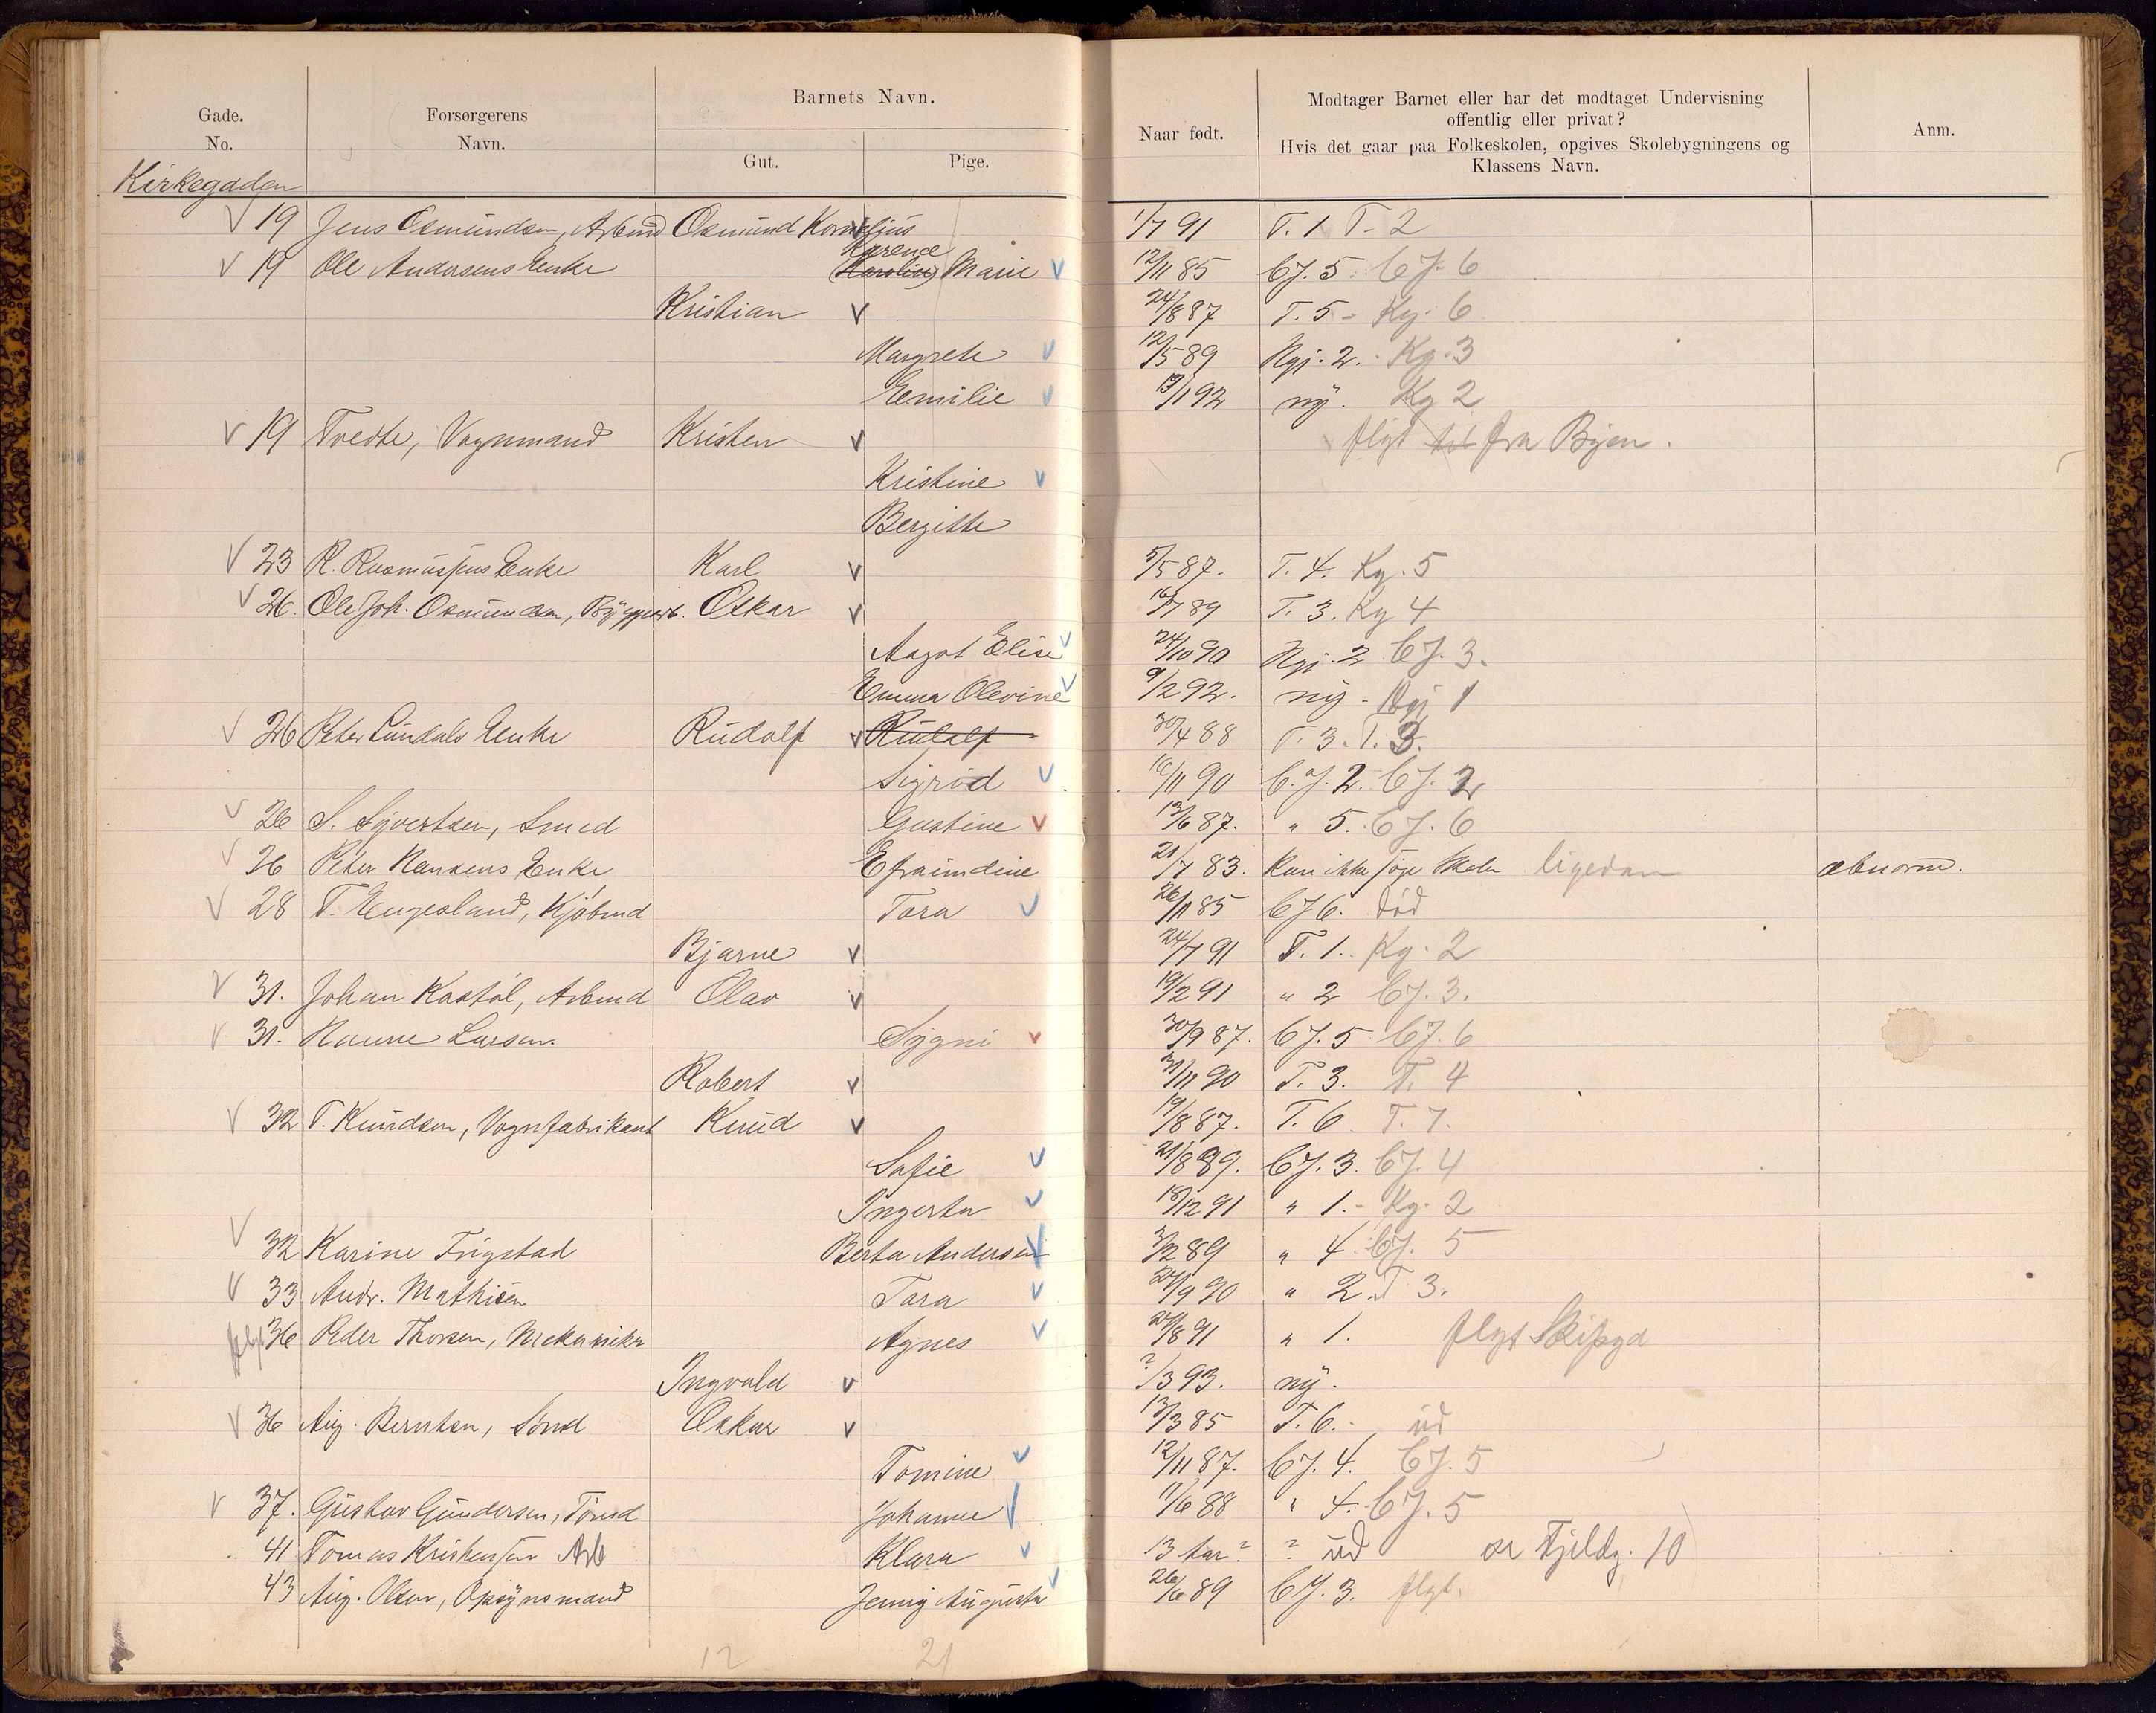 Gade.
No.
Forsørgerens
Navn.
Barnets Navn.
Gut.
Pige.
Naar født.
Modtager Barnet eller har det modtaget Undervisning
offentlig eller privat?
Hvis det gaar paa Folkeskolen, opgives Skolebygningens og
Klassens Navn.
Anm.
Kirkegaden
19 Jens Osmundsen, Arbmd Osmund Kornelius 1/7 91 T. 1 T. 2
Karence
19 Ole Andersens Enke (Karoline) Marie 12/11 85 C.J. 5. C.J. 6
Kristian 24/8 87 T. 5 - Kg. 6
Margrete 12/5 89 Kgj. 2. Kg. 3
Emilie 13/1 92 ny. Kg 2
19 Tvedte, Vognmand Kristen flyt til fra Byen.
Kristine
Bergitte
23 R. Rasmussens Enke Karl 5/5 87. T. 4. Kg. 5
26. Ole Joh. Osmundsen, Byggmarb. Oskar 16/7 89 T. 3. Kg 4
Aagot Elise 24/10 90 Kgj. 2 C.J. 3.
Emma Olevine 9/2 92. ny - Kgj 1
26 Peter Lundals Enke Rudolf Rudolf 30/4 88 T. 3. T. 3.
Sigrid 16/11 90 C.J. 2. C.J. 2
26 S. Syvertsen, Smed Gustine 13/6 87. " 5. C.J. 6
26 Peter Hansens Enke Efraimdine 21/7 83. Kan ikke søge Skolen ligedan abnorm.
28 T. Engesland, Kjøbmd Tora 26/11 85 C.J. 6. død
Bjarne 24/7 91 T. 1. Kg. 2
31. Johan Kastøl, Arbmd Olav 19/2 91 " 2 C.J. 3.
31. Hanne Larsen. Sygni 30/9 87. C.J. 5 C.J. 6
Robert /11 90 T. 3. T. 4
32 T. Knudsen, Vognfabrikant Knud 19/8 87. T. 6 T. 7.
Sofie 21/8 89. C.J. 3. C.J. 4
Ingerta 18/12 91 " 1. - Kg. 2
32 Karine Frigstad Berta Andersen 3/2 89 " 4 C.J. 5
33 Andr. Mathisen Tora 24/9 90 " 2. T 3.
flyt 36 Peder Thorsen, Mekaniker Agnes 24/8 91 " 1. flyt Skipgd
Ingvald ?/3 93. ny.
36 Aug. Berntsen, Sømd Oskar 13/3 85 T. 6. - ud
Tomine 12/11 87. C.J. 4. C.J. 5
37. Gustav Gundersen, Tømd Johanne 11/6 88 " 4. C.J. 5
41 Tomas Kristensen Arb Klara 13 Aar? ? ud er Fjeldg. 10
43 Aug. Olsen, Opsynsmand Jenny Augusta 26/6 89 C.J. 3. flyt.
12 21